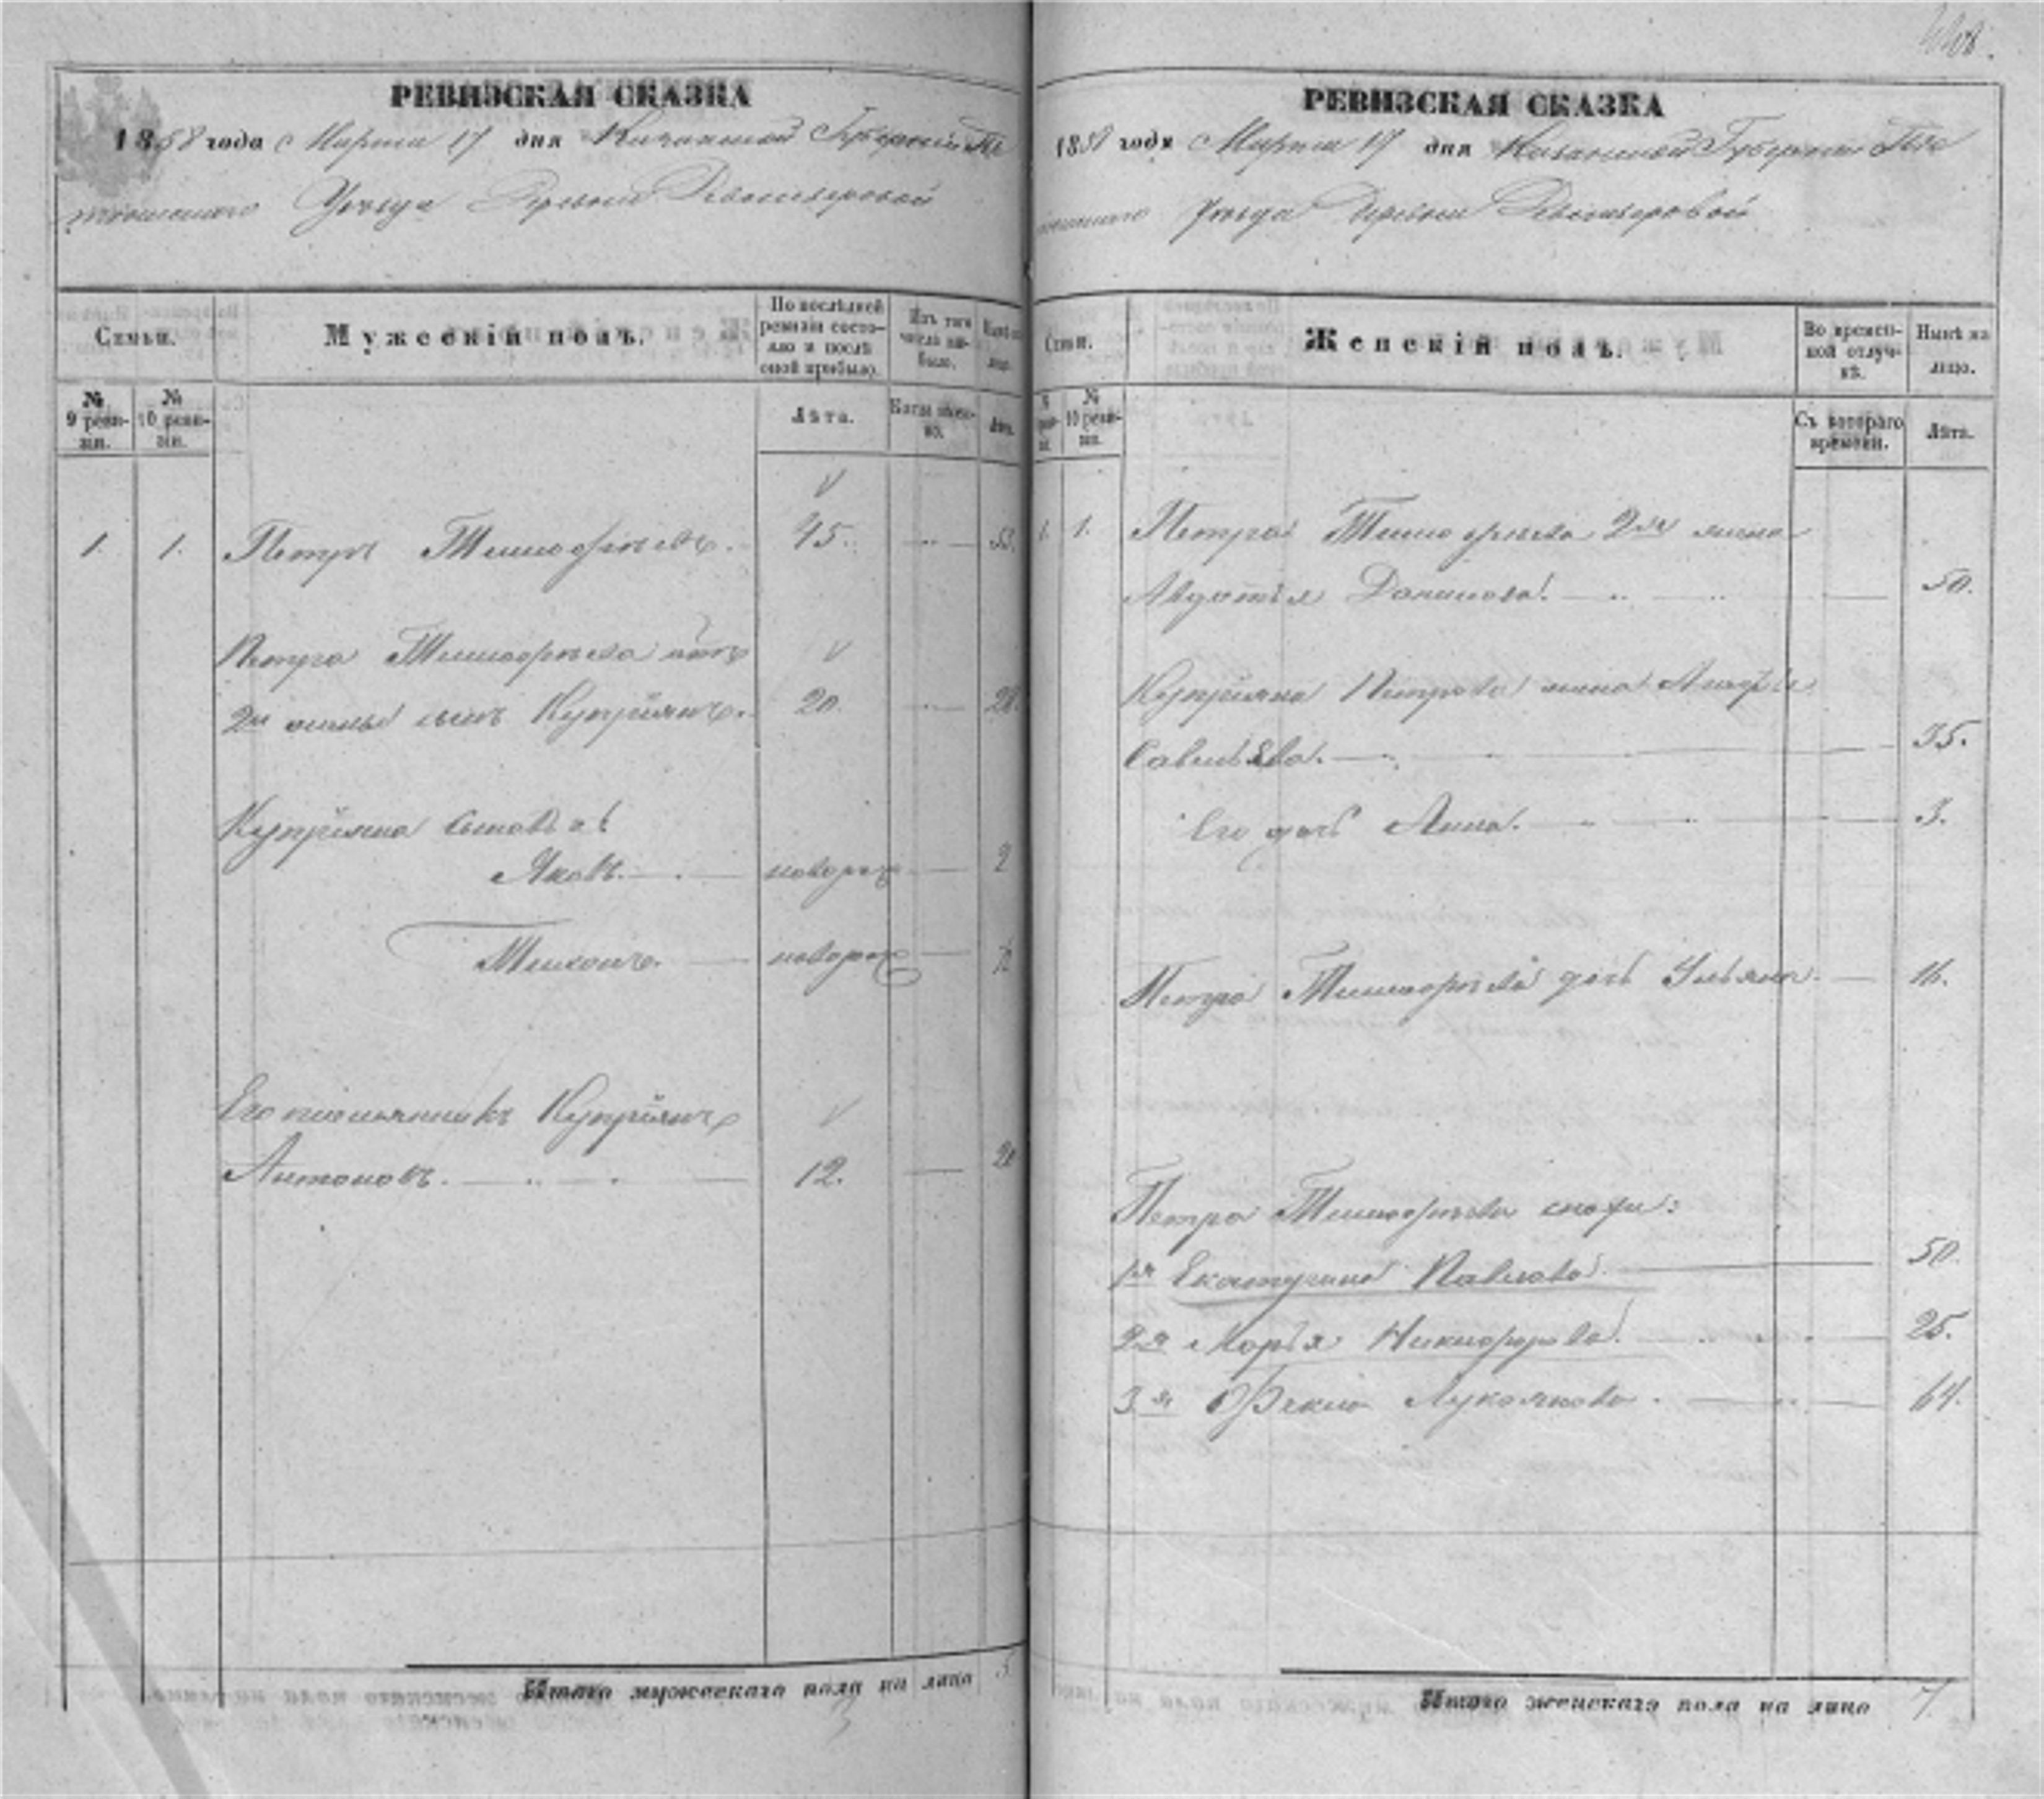 РЕВИЗСКАЯ СКАЗКА
1858 года Марта 17 дня Казанской Губернии Те
тюшскаго Уезда Деревни
Семьи.
Мужескій полъ.
По послѣдней ревизіи состояло и послѣ оной прибыло.
Изъ того числа выбыло.
Нынѣ на лицо.
№ 9 ревизіи.
№ 10 ревизіи.
Лѣта.
Когда именно.
Лѣта.
1. 1. Петръ Тимофѣевъ. 45. 53.
Петра Тимофѣева отъ
2й жены сынъ Купріянъ. 20. 28.
Купріяна сыновья
Яковъ. новорож 2
Тихонъ. новорож
Его племянникъ Купріянъ
Антоновъ. 12. 20
Итого мужескаго пола на лицо 5
РЕВИЗСКАЯ СКАЗКА
1858 года Марта 17 дня Казанской Губерніи Те
тюшскаго Уезда Деревни
Семьи.
Женскій полъ.
Во временной отлучкѣ.
Нынѣ на лицо.
№ 10 ревизіи.
Съ котораго времени.
Лѣта.
1. 1. Петра Тимофѣева 2я жена
Авдотья Данилова. 50.
Купріяна Петрова жена
Савельева. 35.
Его дочь Анна. 3.
Петра Тимофѣева дочь Ульяна. 16.
Петра Тимофѣева снохи:
1я Екатерина Павлова. 50.
2я Марья Никифорова. 25.
3я Фекла Лукоянова. 64.
Итого женскаго пола на лицо 7